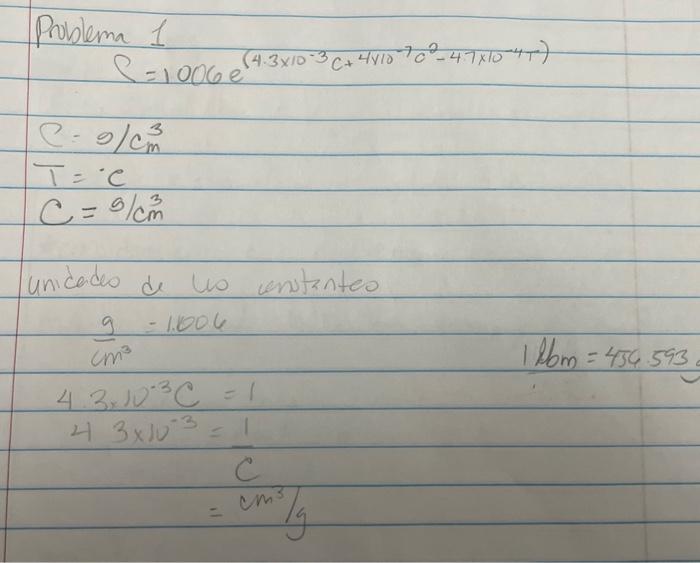 Problema 1
ρ=1.006e^(4.3x10^-3 C + 4x10^-7 C^2 - 4.7x10^-4 T)
ρ = g/cm^3
T = °C
C = g/cm^3
unidades de las constantes
g/cm^3 = 1.006
1 lbm = 454.593 g
4.3x10^-3 C = 1
4.3x10^-3 = 1/C
= cm^3/g